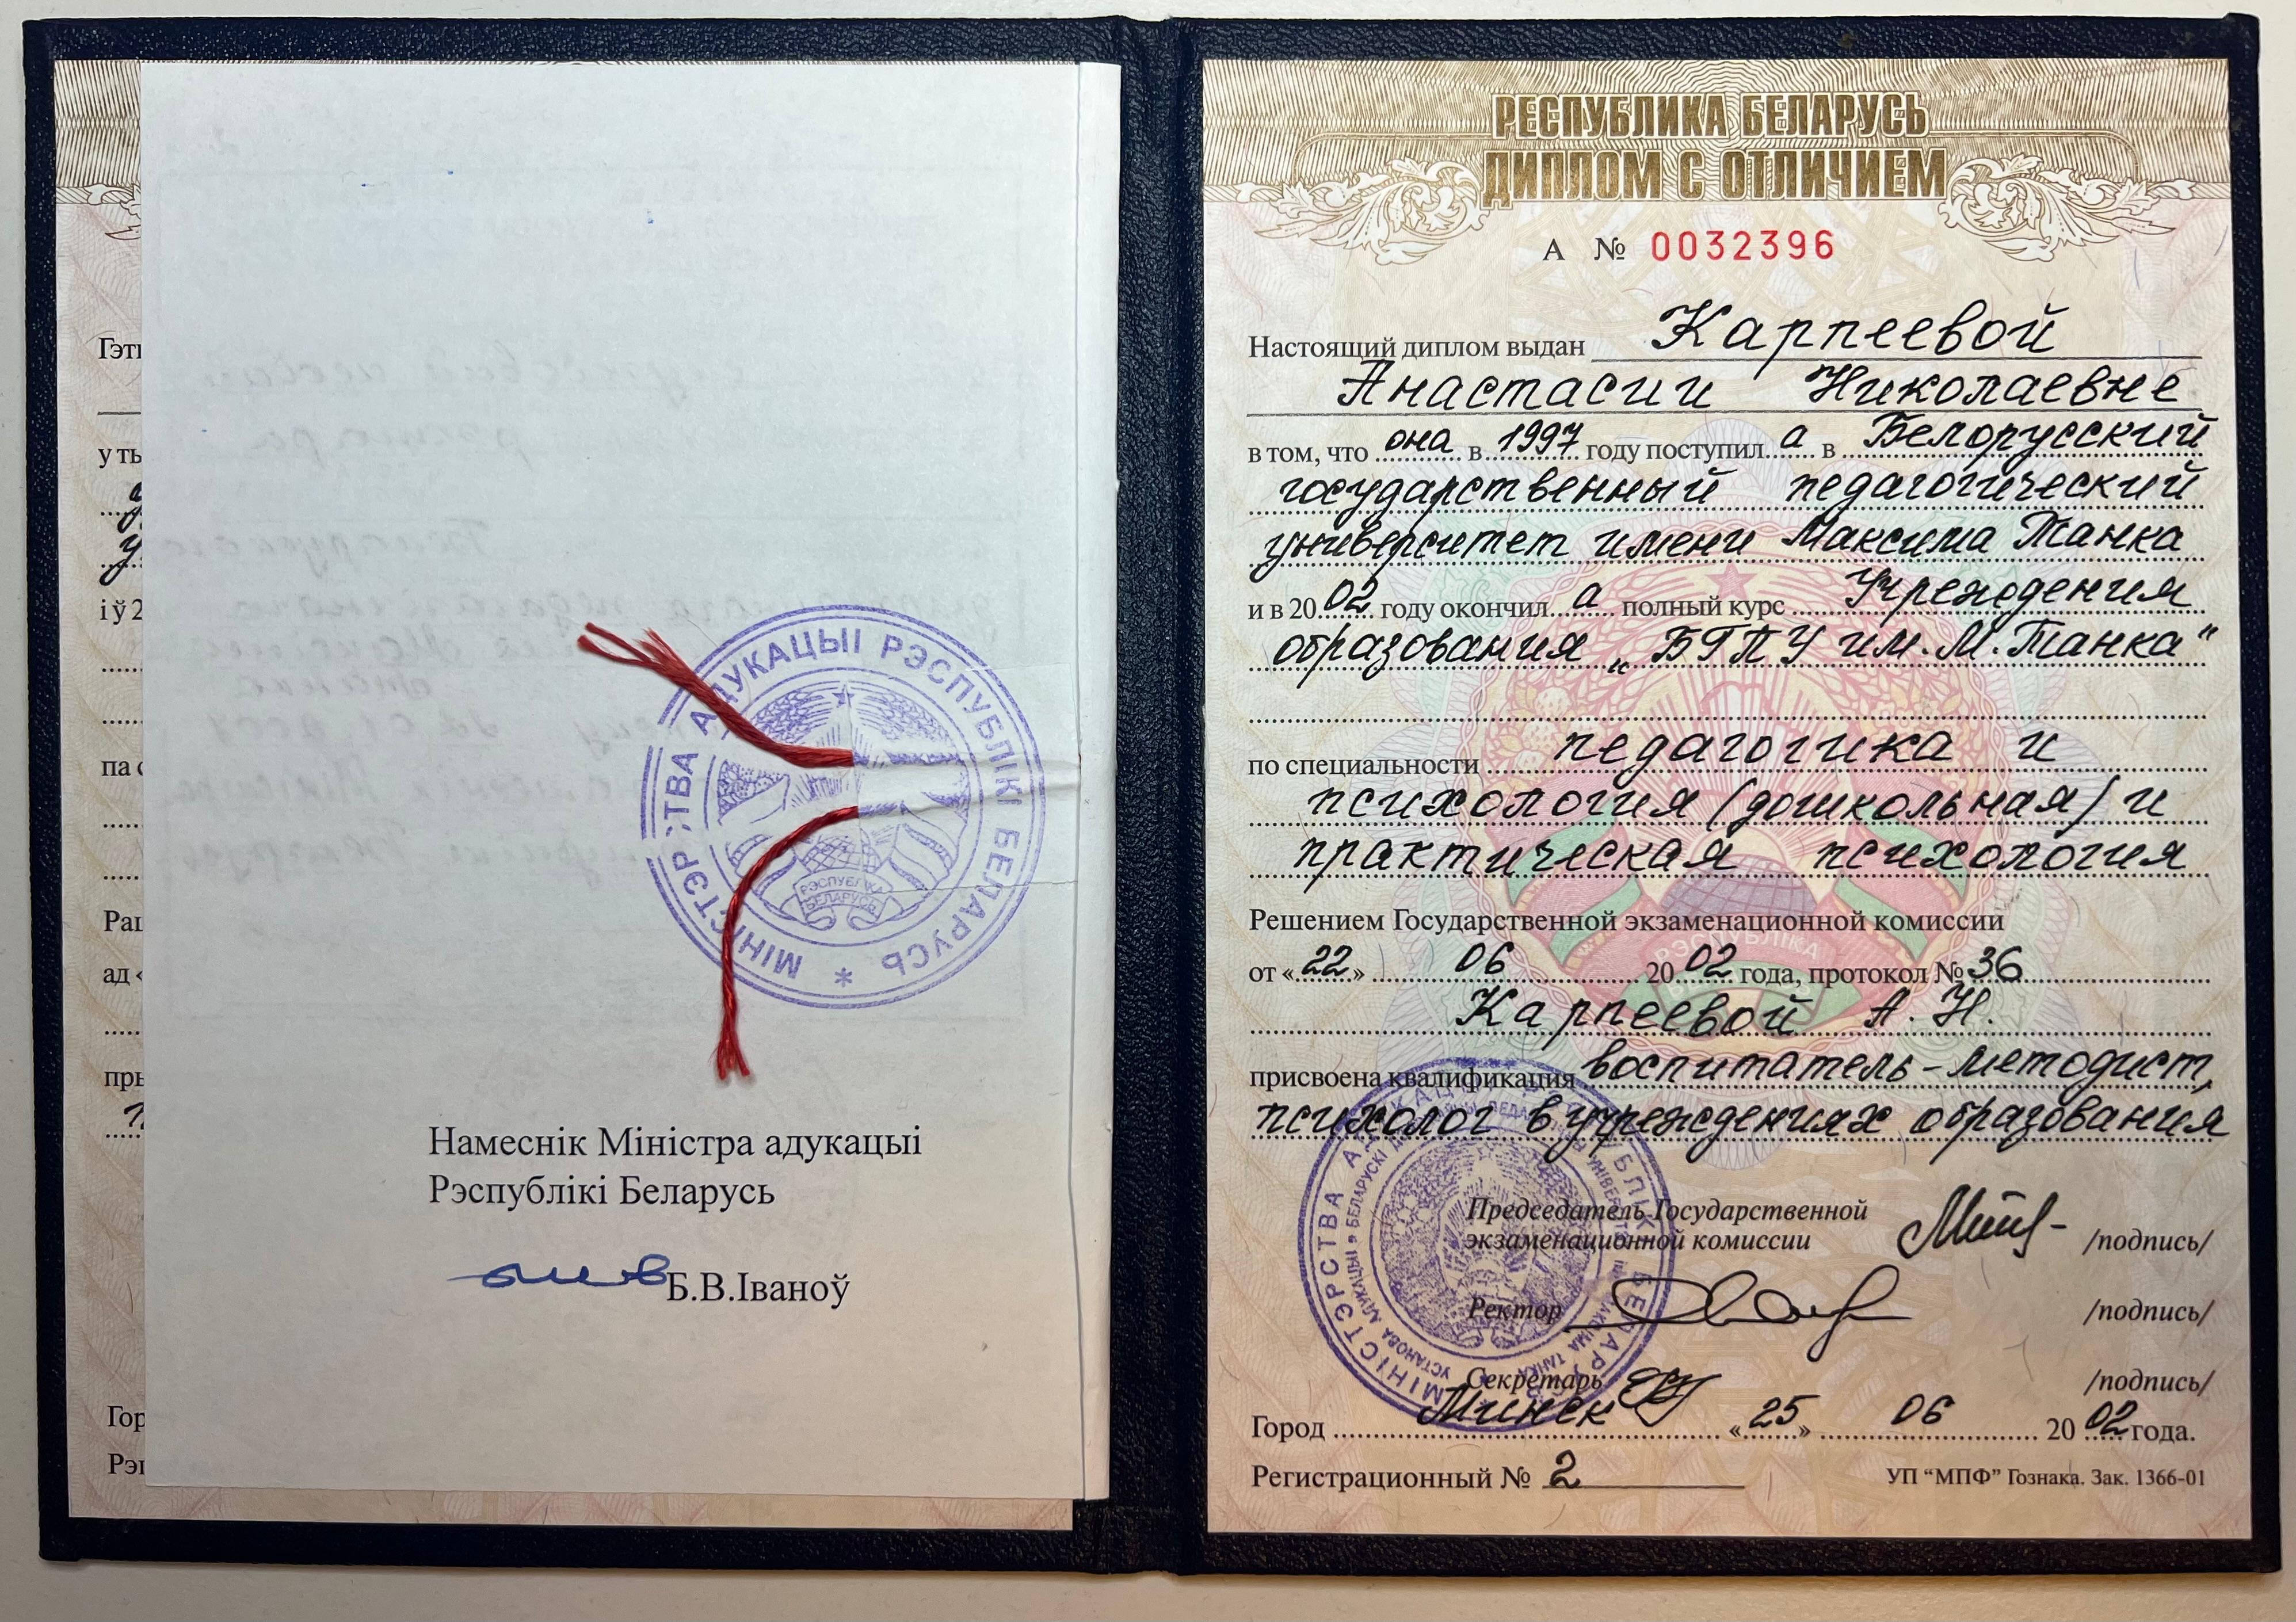 Гэты
у ты
і ў 2
па с
Раш
ад «
пры
Гор
Рэг
МІНІСТЭРСТВА АДУКАЦЫІ РЭСПУБЛІКІ БЕЛАРУСЬ *
РЭСПУБЛІКА
БЕЛАРУСЬ
Намеснік Міністра адукацыі
Рэспублікі Беларусь
Б.В.Іваноў
РЕСПУБЛИКА БЕЛАРУСЬ
ДИПЛОМ С ОТЛИЧИЕМ
А № 0032396
Настоящий диплом выдан Карпеевой
Анастасии Николаевне
в том, что она в 1997 году поступил а в Белорусский
государственный педагогический
университет имени Максима Танка
и в 2002 году окончил а полный курс Учреждения
образования „БГПУ им. М. Танка"
по специальности педагогика и
психология (дошкольная) и
практическая психология
Решением Государственной экзаменационной комиссии
от «22» 06 2002 года, протокол № 36
Карпеевой А. Н.
присвоена квалификация воспитатель-методист,
психолог в учреждениях образования
Председатель Государственной
экзаменационной комиссии /подпись/
Ректор /подпись/
Секретарь /подпись/
Город Минск «25» 06 2002 года.
Регистрационный № 2 УП “МПФ” Гознака. Зак. 1366-01